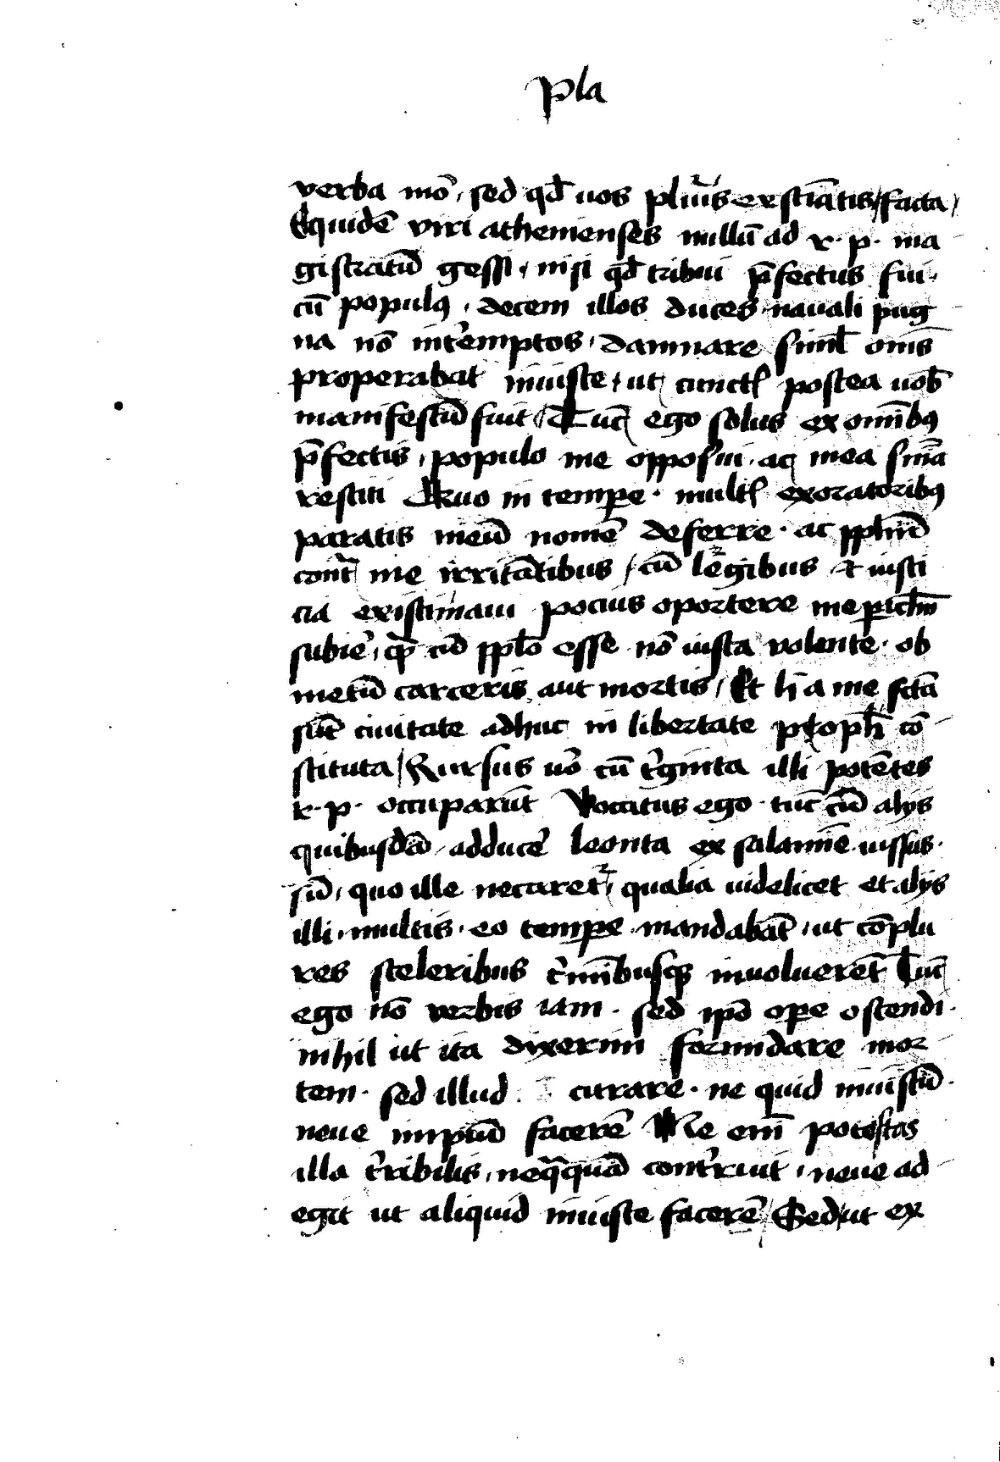 Pla
verba mō, sed qđ uos pluris existiātis/ facta/
Equidē viri athemenses nullū ad r. p. ma
gistratū gessi, nisi qđ tribui p̄fectus fui.
cū populꝰ, decem illos duces navali pug
na nō int̉emptos, damnare siml̄ om̄s
properabat iniuste, ut cunctꝭ postea uob̄
manifestū fuit/ Tūc ego solus ex om̄ibꝰ
p̄fectis, populo me opposui, ac mea sn̄ia
restiti Quo in temꝑe. multꝭ exoratoribꝰ
paratis meū nomē deferre. ac ꝓpl̄m
contᷓ me irritātibus, cū legibus et iusti
cia existimaui pocius oportere me ꝑicl̄m
subir̄e, qᷓ cū ppl̄o esse nō iusta volente. ob
metū carceris aut mortis, Et h̄ a me fc̄a
sūt ciuitate adhuc in libertate
stituta/ Rursus uō cū t̉ginta illi potētes
r. p. occuparūt Vocatus ego tūc cū alijs
quibusdā, adducer̄e leonta ex salamīe iussus.
sū, quo ille necaretᷣ, qualia uidelicet et alijs
illi, multis, eo temꝑe mandabāt, ut cōplu
res sceleribus c̉minibusqꝫ inuoluerēt Tūc
ego nō verbis iam. sed ip̄o oꝑe ostendi.
nihil ut ita dixerim formidare mor
tem. sed illud curare. ne quid iniustū.
neue impiū facerē Me eni͞ potestas
illa t̉ribilis, neq̄quā conterruit, neue ad
egit ut aliquid iniuste facerē/ Sed ut ex